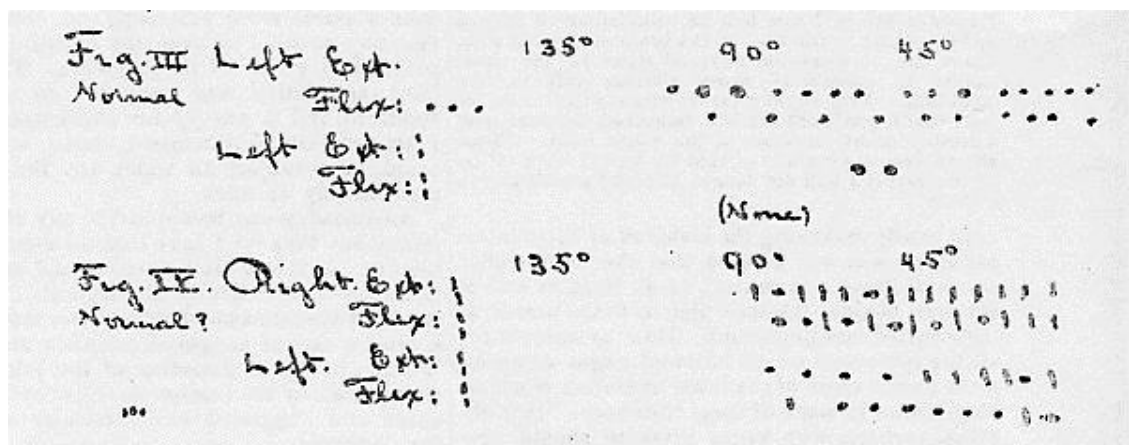 Fig. III Left Ext. 135° 90° 45°
Normal Flex:
Left Ext:
Flex:
(None)
Fig. IV. Right. Ext: 135° 90° 45°
Normal? Flex:
Left. Ext:
Flex: